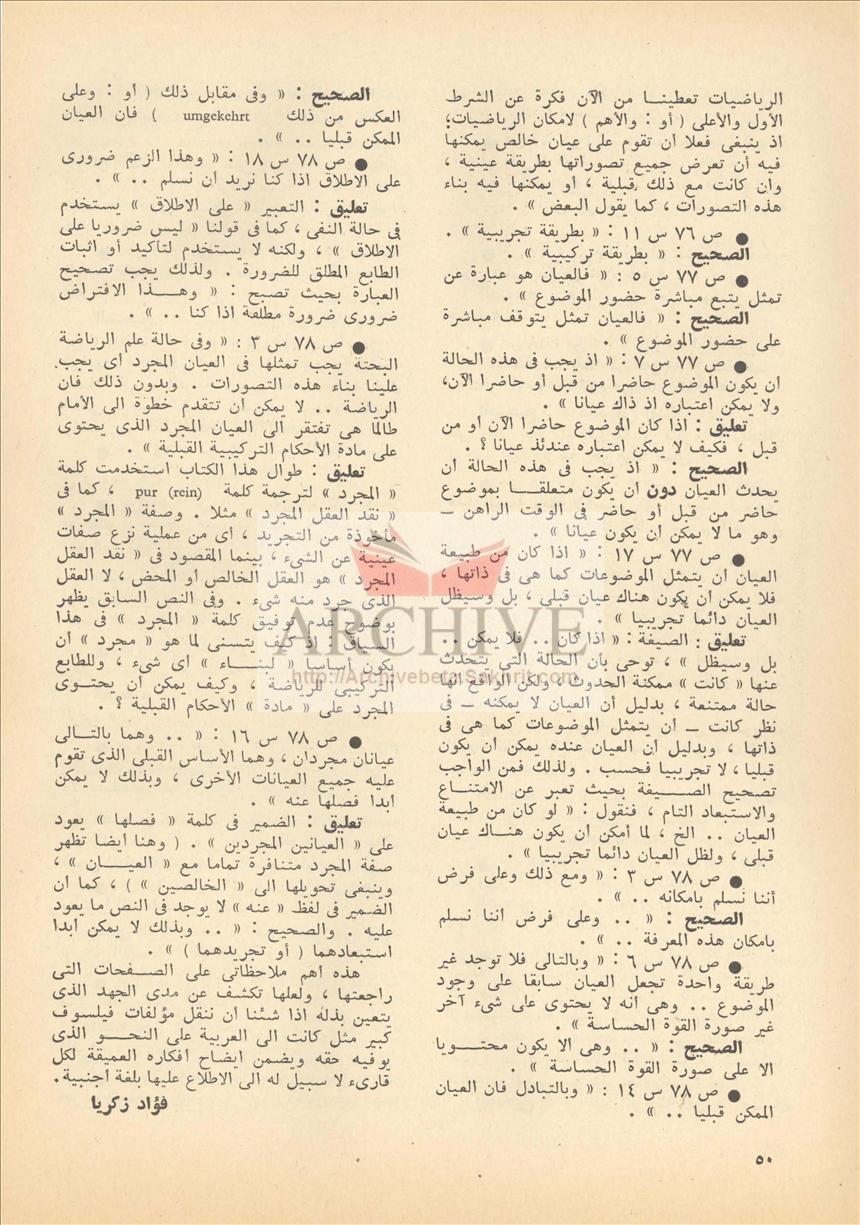 الرياضيات تعطينـــا من الآن فكرة عن الشرط
الأول والأعلى ( أو : والأهم ) لامكان الرياضيات؛
اذ ينبغى فعلا أن تقوم على عيان خالص يمكنها
فيه أن تعرض جميع تصوراتها بطريقة عينية ،
وان كانت مع ذلك قبلية ، أو يمكنها فيه بناء
هذه التصورات ، كما يقول البعض » .
● ص ٧٦ س ١١ : « بطريقة تجريبية » .
الصحيح : « بطريقة تركيبية » .
● ص ٧٧ س ٥ : « فالعيان هو عبارة عن
تمثل يتبع مباشرة حضور الموضوع » .
الصحيح : « فالعيان تمثل يتوقف مباشرة
على حضور الموضوع » .
● ص ٧٧ س ٧ : « اذ يجب فى هذه الحالة
ان يكون الموضوع حاضرا من قبل أو حاضرا الآن،
ولا يمكن اعتباره اذ ذاك عيانا » .
تعليق : اذا كان الموضوع حاضرا الآن أو من
قبل ، فكيف لا يمكن اعتباره عندئذ عيانا ؟ .
الصحيح : « اذ يجب فى هذه الحالة أن
يحدث العيان دون ان يكون متعلقـــا بموضوع
حاضر من قبل أو حاضر فى الوقت الراهن —
وهو ما لا يمكن أن يكون عيانا » .
● ص ٧٧ س ١٧ : « اذا كان من طبيعة
العيان أن يتمثل الموضوعات كما هى فى ذاتها ،
فلا يمكن أن يكون هناك عيان قبلى ، بل وسيظل
العيان دائما تجريبيا » .
تعليق : الصيغة : « اذا كان .. فلا يمكن ..
بل وسيظل » ، توحى بأن الحالة التى يتحدث
عنها « كانت » ممكنة الحدوث ، ولكن الواقع أنها
حالة ممتنعة ، بدليل أن العيان لا يمكنه — فى
نظر كانت — أن يتمثل الموضوعات كما هى فى
ذاتها ، وبدليل أن العيان عنده يمكن أن يكون
قبليا ، لا تجريبيا فحسب . ولذلك فمن الواجب
تصحيح الصـــيغة بحيث تعبر عن الامتنـاع
والاستبعاد التام ، فنقول : « لو كان من طبيعة
العيان .. الخ ، لما أمكن أن يكون هنـــاك عيان
قبلى ، ولظل العيان دائما تجريبيا » .
● ص ٧٨ س ٣ : « ومع ذلك وعلى فرض
أننا نسلم بامكانه .. » .
الصحيح : « .. وعلى فرض أننا نسلم
بامكان هذه المعرفة .. » .
● ص ٧٨ س ٦ : « وبالتالى فلا توجد غير
طريقة واحدة تجعل العيان سابقا على وجود
الموضوع .. وهى انه لا يحتوى على شىء آخر
غير صورة القوة الحساسة » .
الصحيح : « .. وهى ألا يكون محتـــويا
الا على صورة القوة الحساسة » .
● ص ٧٨ س ١٤ : « وبالتبادل فان العيان
الممكن قبليا .. » .
الصحيح : « وفى مقابل ذلك ( أو : وعلى
العكس من ذلك umgekehrt ) فان العيان
الممكن قبليا .. » .
● ص ٧٨ س ١٨ : « وهذا الزعم ضرورى
على الاطلاق اذا كنا نريد أن نسلم .. » .
تعليق : التعبير « على الاطلاق » يستخدم
فى حالة النفى ، كما فى قولنا « ليس ضروريا على
الاطلاق » ، ولكنه لا يستخدم لتأكيد أو اثبات
الطابع المطلق للضرورة . ولذلك يجب تصحيح
العبارة بحيث تصبح : « وهـــذا الافتراض
ضرورى ضرورة مطلقة اذا كنا .. » .
● ص ٧٨ س ٣ : « وفى حالة علم الرياضة
البحتة يجب تمثلها فى العيان المجرد أى يجب
علينا بناء هذه التصورات . وبدون ذلك فان
الرياضة .. لا يمكن أن تتقدم خطوة الى الأمام
طالما هى تفتقر الى العيان المجرد الذى يحتوى
على مادة الأحكام التركيبية القبلية » .
تعليق : طوال هذا الكتاب استخدمت كلمة
« المجرد » لترجمة كلمة pur (rein) ، كما فى
« نقد العقل المجرد » مثلا . وصفة « المجرد »
مأخوذة من التجريد ، أى من عملية نزع صفات
عينية عن الشىء ، بينما المقصود فى « نقد العقل
المجرد » هو العقل الخالص أو المحض ، لا العقل
الذى جرد منه شىء . وفى النص السابق يظهر
بوضوح عدم توفيق كلمة « المجرد » فى هذا
السياق : اذ كيف يتسنى لما هو « مجرد » أن
يكون أساسا « لبنـــاء » أى شىء ، وللطابع
التركيبى للرياضة ، وكيف يمكن أن يحتـــوى
المجرد على « مادة » الأحكام القبلية ؟ .
● ص ٧٨ س ١٦ : « .. وهما بالتـــالى
عيانان مجردان ، وهما الأساس القبلى الذى تقوم
عليه جميع العيانات الأخرى ، وبذلك لا يمكن
ابدا فصلها عنه » .
تعليق : الضمير فى كلمة « فصلها » يعود
على « العيانين المجردين » . ( وهنا أيضا تظهر
صفة المجرد متنافرة تماما مع « العيـــان » ،
وينبغى تحويلها الى « الخالصين » ) ، كما أن
الضمير فى لفظ « عنه » لا يوجد فى النص ما يعود
عليه . والصحيح : « .. وبذلك لا يمكن أبدا
استبعادهما ( أو تجريدهما ) » .
هذه اهم ملاحظاتى على الصـــفحات التى
راجعتها ، ولعلها تكشف عن مدى الجهد الذى
يتعين بذله اذا شئنا ان ننقل مؤلفات فيلسوف
كبير مثل كانت الى العربية على النحـــو الذى
يوفيه حقه ويضمن ايضاح أفكاره العميقة لكل
قارىء لا سبيل له الى الاطلاع عليها بلغة أجنبية.
فؤاد زكريا
٥٠
ARCHIVE
http://Archivebeta.Sakhrit.com